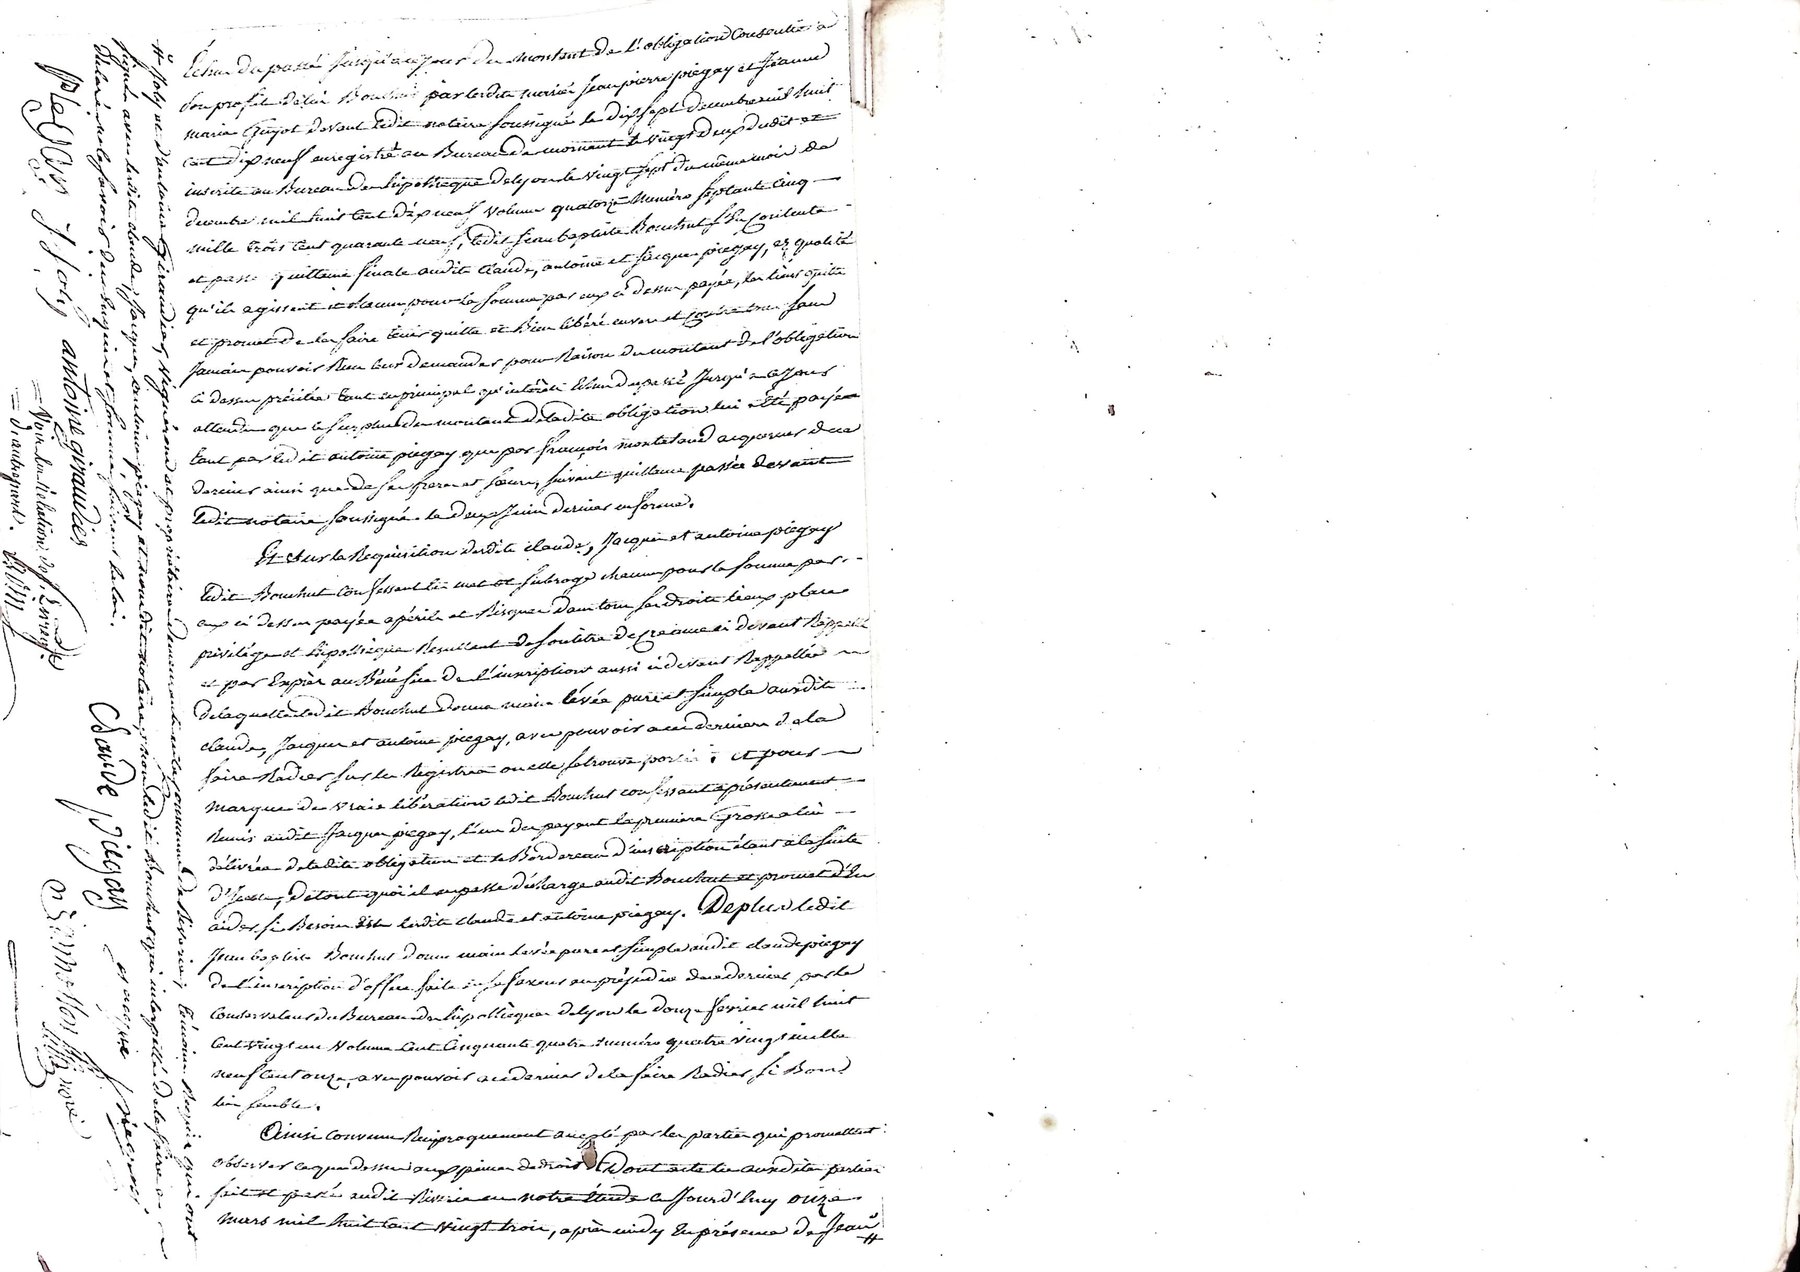 Échus du passé jusqu'à ce jour du montant de l'obligation consentie à
son profit délié Bouchut par lesdits mariés Jean pierre piegay et Jeanne
marie Guyot devant ledit notaire soussigné le dix sept decembre mil huit
cent dix neuf enregistré au Bureau de mornant le vingt deux dudit et
inscrite au Bureau des hipothèques de lyon le vingt sept du même mois de
decembre mil huit cent dix neuf volume quatorze numéro septante cinq
mille trois cent quarante neuf, ledit Jean baptiste Bouchut s'en contente
et passe quittance finale audits Claude, antoine et Jacques piegay, es qualités
qu'ils agissent et chacun pour la somme par eux ci dessus payée, les tient quitte
et promet de les faire tenir quitte et Bien libéré envers et contre tous sans
Jamais pouvoir Rien leur demander pour Raison du montant de l'obligation
ci dessus précitée tant en principal qu'intérêts Echus du passé Jusqu'à ce Jour
attendu que le surplus du montant de ladite obligation lui a été payée
tant par ledit antoine piegay que par françois monteland acquereur de ce
dernier ainsi que de ses freres et soeurs, suivant quittance passée devant
ledit notaire soussigné le deux Juin dernier en forme.
Et sur la Requisition desdits claude, Jacques et antoine piegay
ledit Bouchut confessant les met et subroge chacun pour la somme par
eux ci dessus payée a périls et Risques dans tous ses droits lieux place
privilège et hipothèque Resultant de son titre de creance ci devant Rappellé
et par Exprès au Bénéfice de l'inscription aussi ci devant Rappellée
de laquelle ledit Bouchut donne main levée pure et simple auxdits
claude, Jacques et antoine piegay, avec pouvoir a ces derniers de la
faire Radier sur les Registres ou elle se trouve portée; et pour
marque de vraie libération ledit Bouchut confessant a présentement
Remis audit Jacques piegay, l'un des payant la premiere Grosse a lui
délivrée de ladite obligation et le Bordereau d'inscription étant a la suite
d'Icelle, de tout quoi il en passe décharge audit Bouchut et promet d'en
aider si Besoin Est lesdits claude et antoine piegay. De plus ledit
Jean baptiste Bouchut donne main levée pure et simple audit claude piegay
de l'inscription d'office faite en sa faveur au préjudice de ce dernier par le
conservateur du Bureau des hipothèques de lyon le douze fevrier mil huit
cent vingt un volume cent cinquante quatre numéro quatre vingt mille
neuf cent onze, avec pouvoir a ce dernier de la faire Radier si Bon
lui semble.
Ainsi convenu Reciproquement accepté par les parties qui promettent
observer ce que dessus aux peines de droit Dont acte lu auxdites parties
fait et passé audit Riverie en notre étude ce Jourd'huy onze
mars mil huit cent vingt trois, après midy En présence de Jean
# Joly et d'antoine Giraudier, Vigneron et propriétaire demeurant en la commune de Riverie, témoins Requis qui ont
signé avec lesdits claude, Jacques, antoine piegay et nousdit notaire, non ledit Bouchut qui interpellé de le faire a
déclaré ne le savoir de ce Enquis et sommé suivant la loi.
J Joly antoine giraudier Claude piegay
Voir la Relation de l'Enregist.
d'autre part.